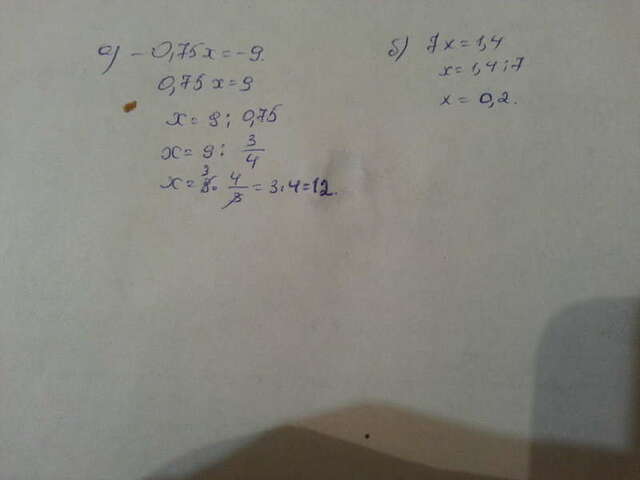 а) -0,75x=-9.
0,75x=9
x=9:0,75
x=9:3/4
x=9·4/3=3·4=12.
б) 7x=1,4
x=1,4:7
x=0,2.